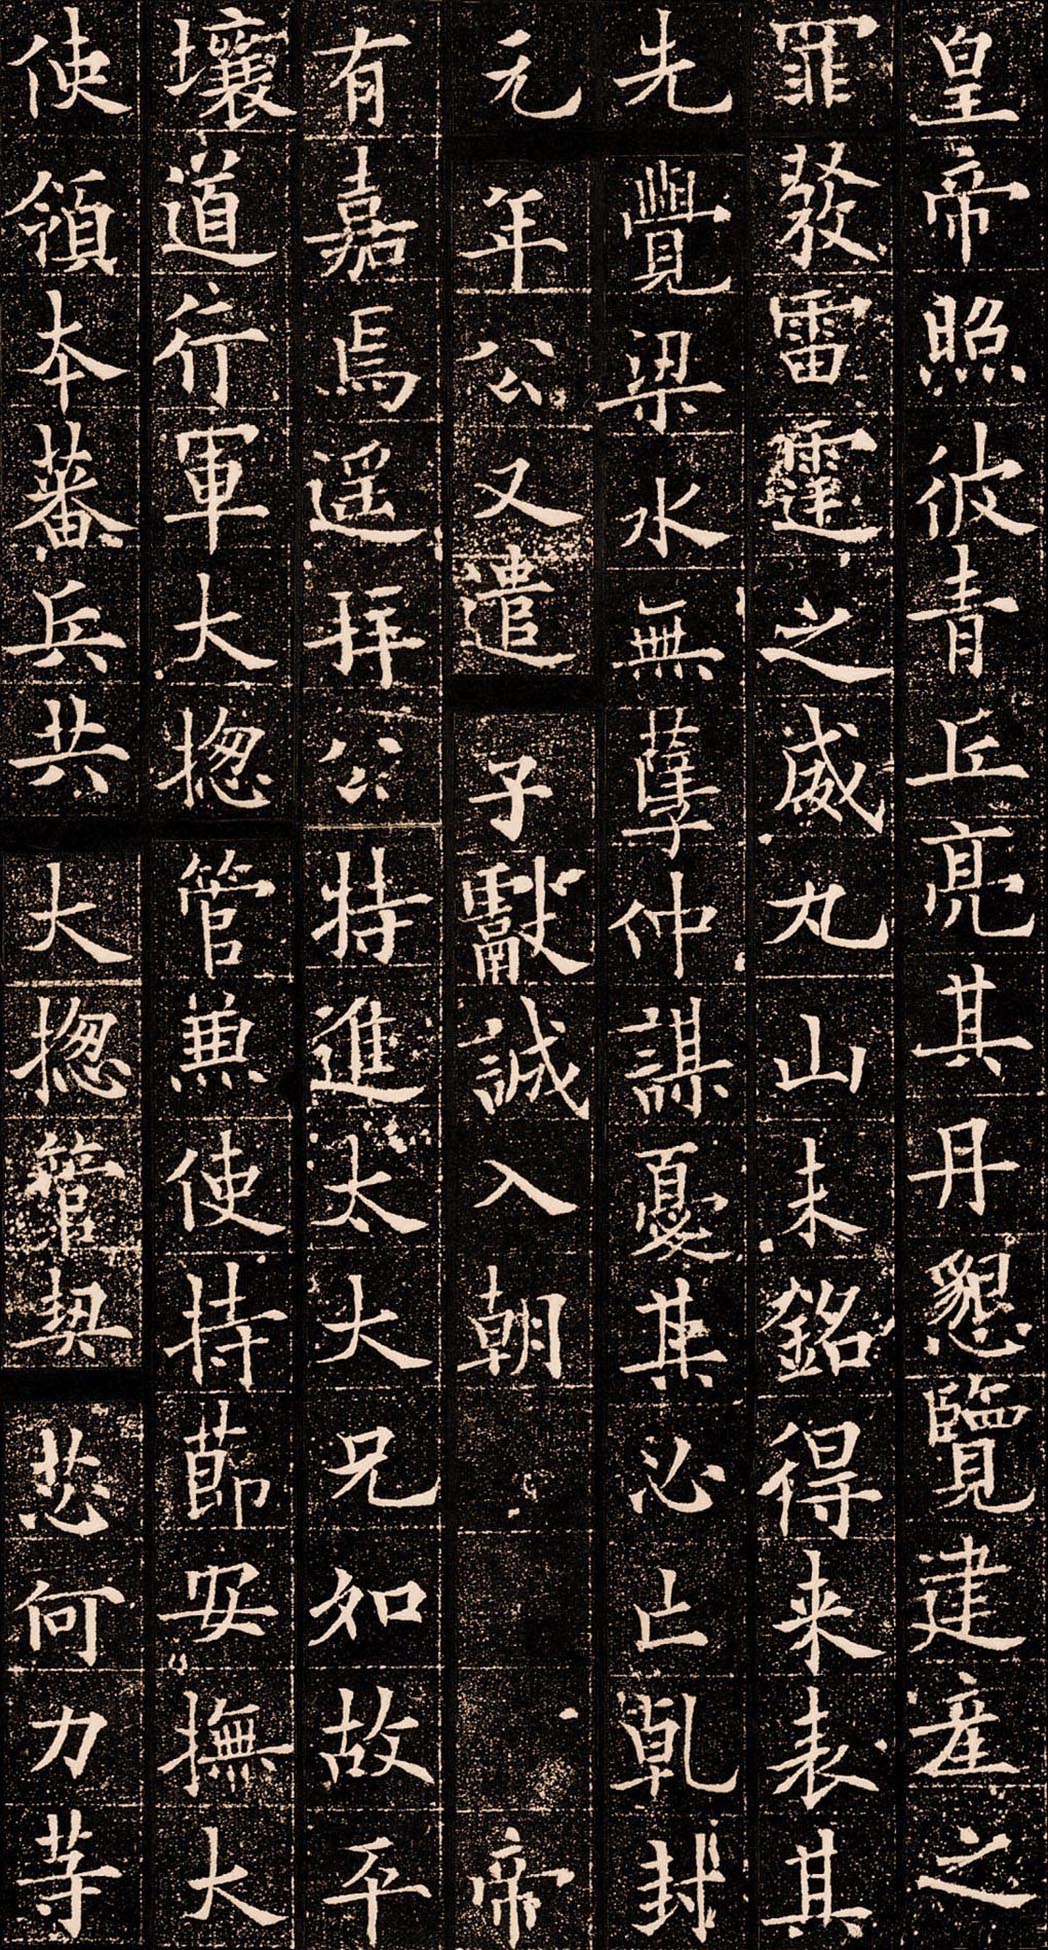 皇帝照彼青丘亮其丹懇覽建産之
罪發雷霆之威丸山未銘得来表其
先覺梁水無孽仲謀憂其必亡乾封
元年公又遣子獻誠入朝帝
有嘉焉遥拜公特進太大兄如故平
壤道行軍大揔管兼使持莭安撫大
使領本蕃兵共大揔管契苾何力等